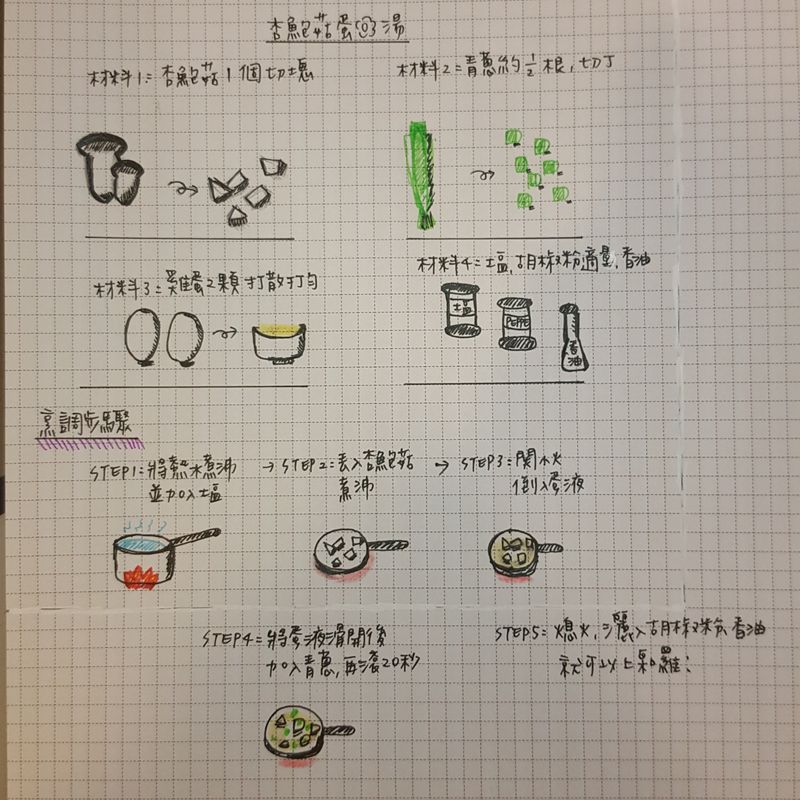 杏鮑菇蛋湯
材料1=杏鮑菇1個切塊
材料2=青蔥約1/2根,切丁
材料3=雞蛋2顆打散打勻
材料4=塩,胡椒粉適量,香油
塩
PEPPE
香油
烹調步驟
STEP1=將熱水煮沸
並加入塩
→STEP2=丟入杏鮑菇
煮沸
→STEP3=關小火
倒入蛋液
STEP4=將蛋液滑開後
加入青蔥,再滾20秒
STEP5=熄火,灑入胡椒粉、香油
就可以上桌囉!